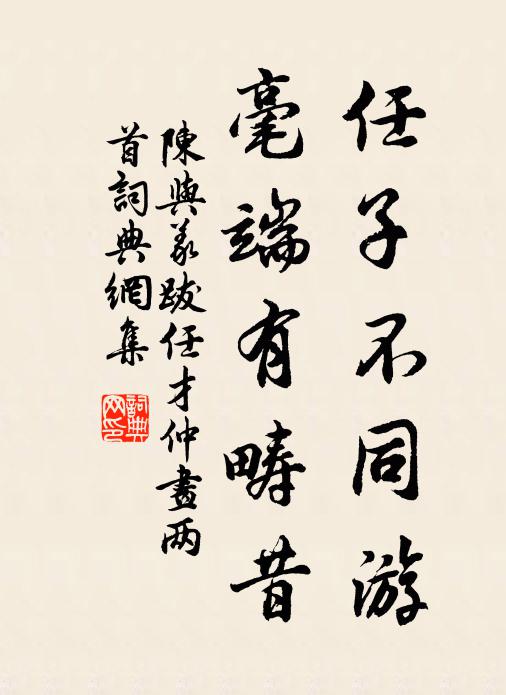 任子不同游
毫端有畴昔
陳與义跋任才仲畫两
首詞典網集
詞典
网印